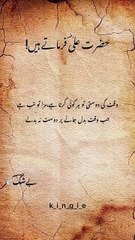 حضرت علیؓ فرماتے ہیں!
وقت کی دوستی تو ہر کوئی کرتا ہے، مزا تو تب ہے
جب وقت بدل جائے پر دوست نہ بدلے
بے شک
k i n g i e